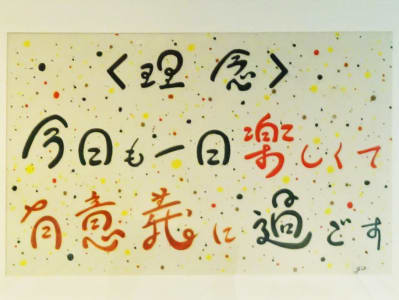 ＜理念＞
今日も一日楽しくて
有意義に過ごす